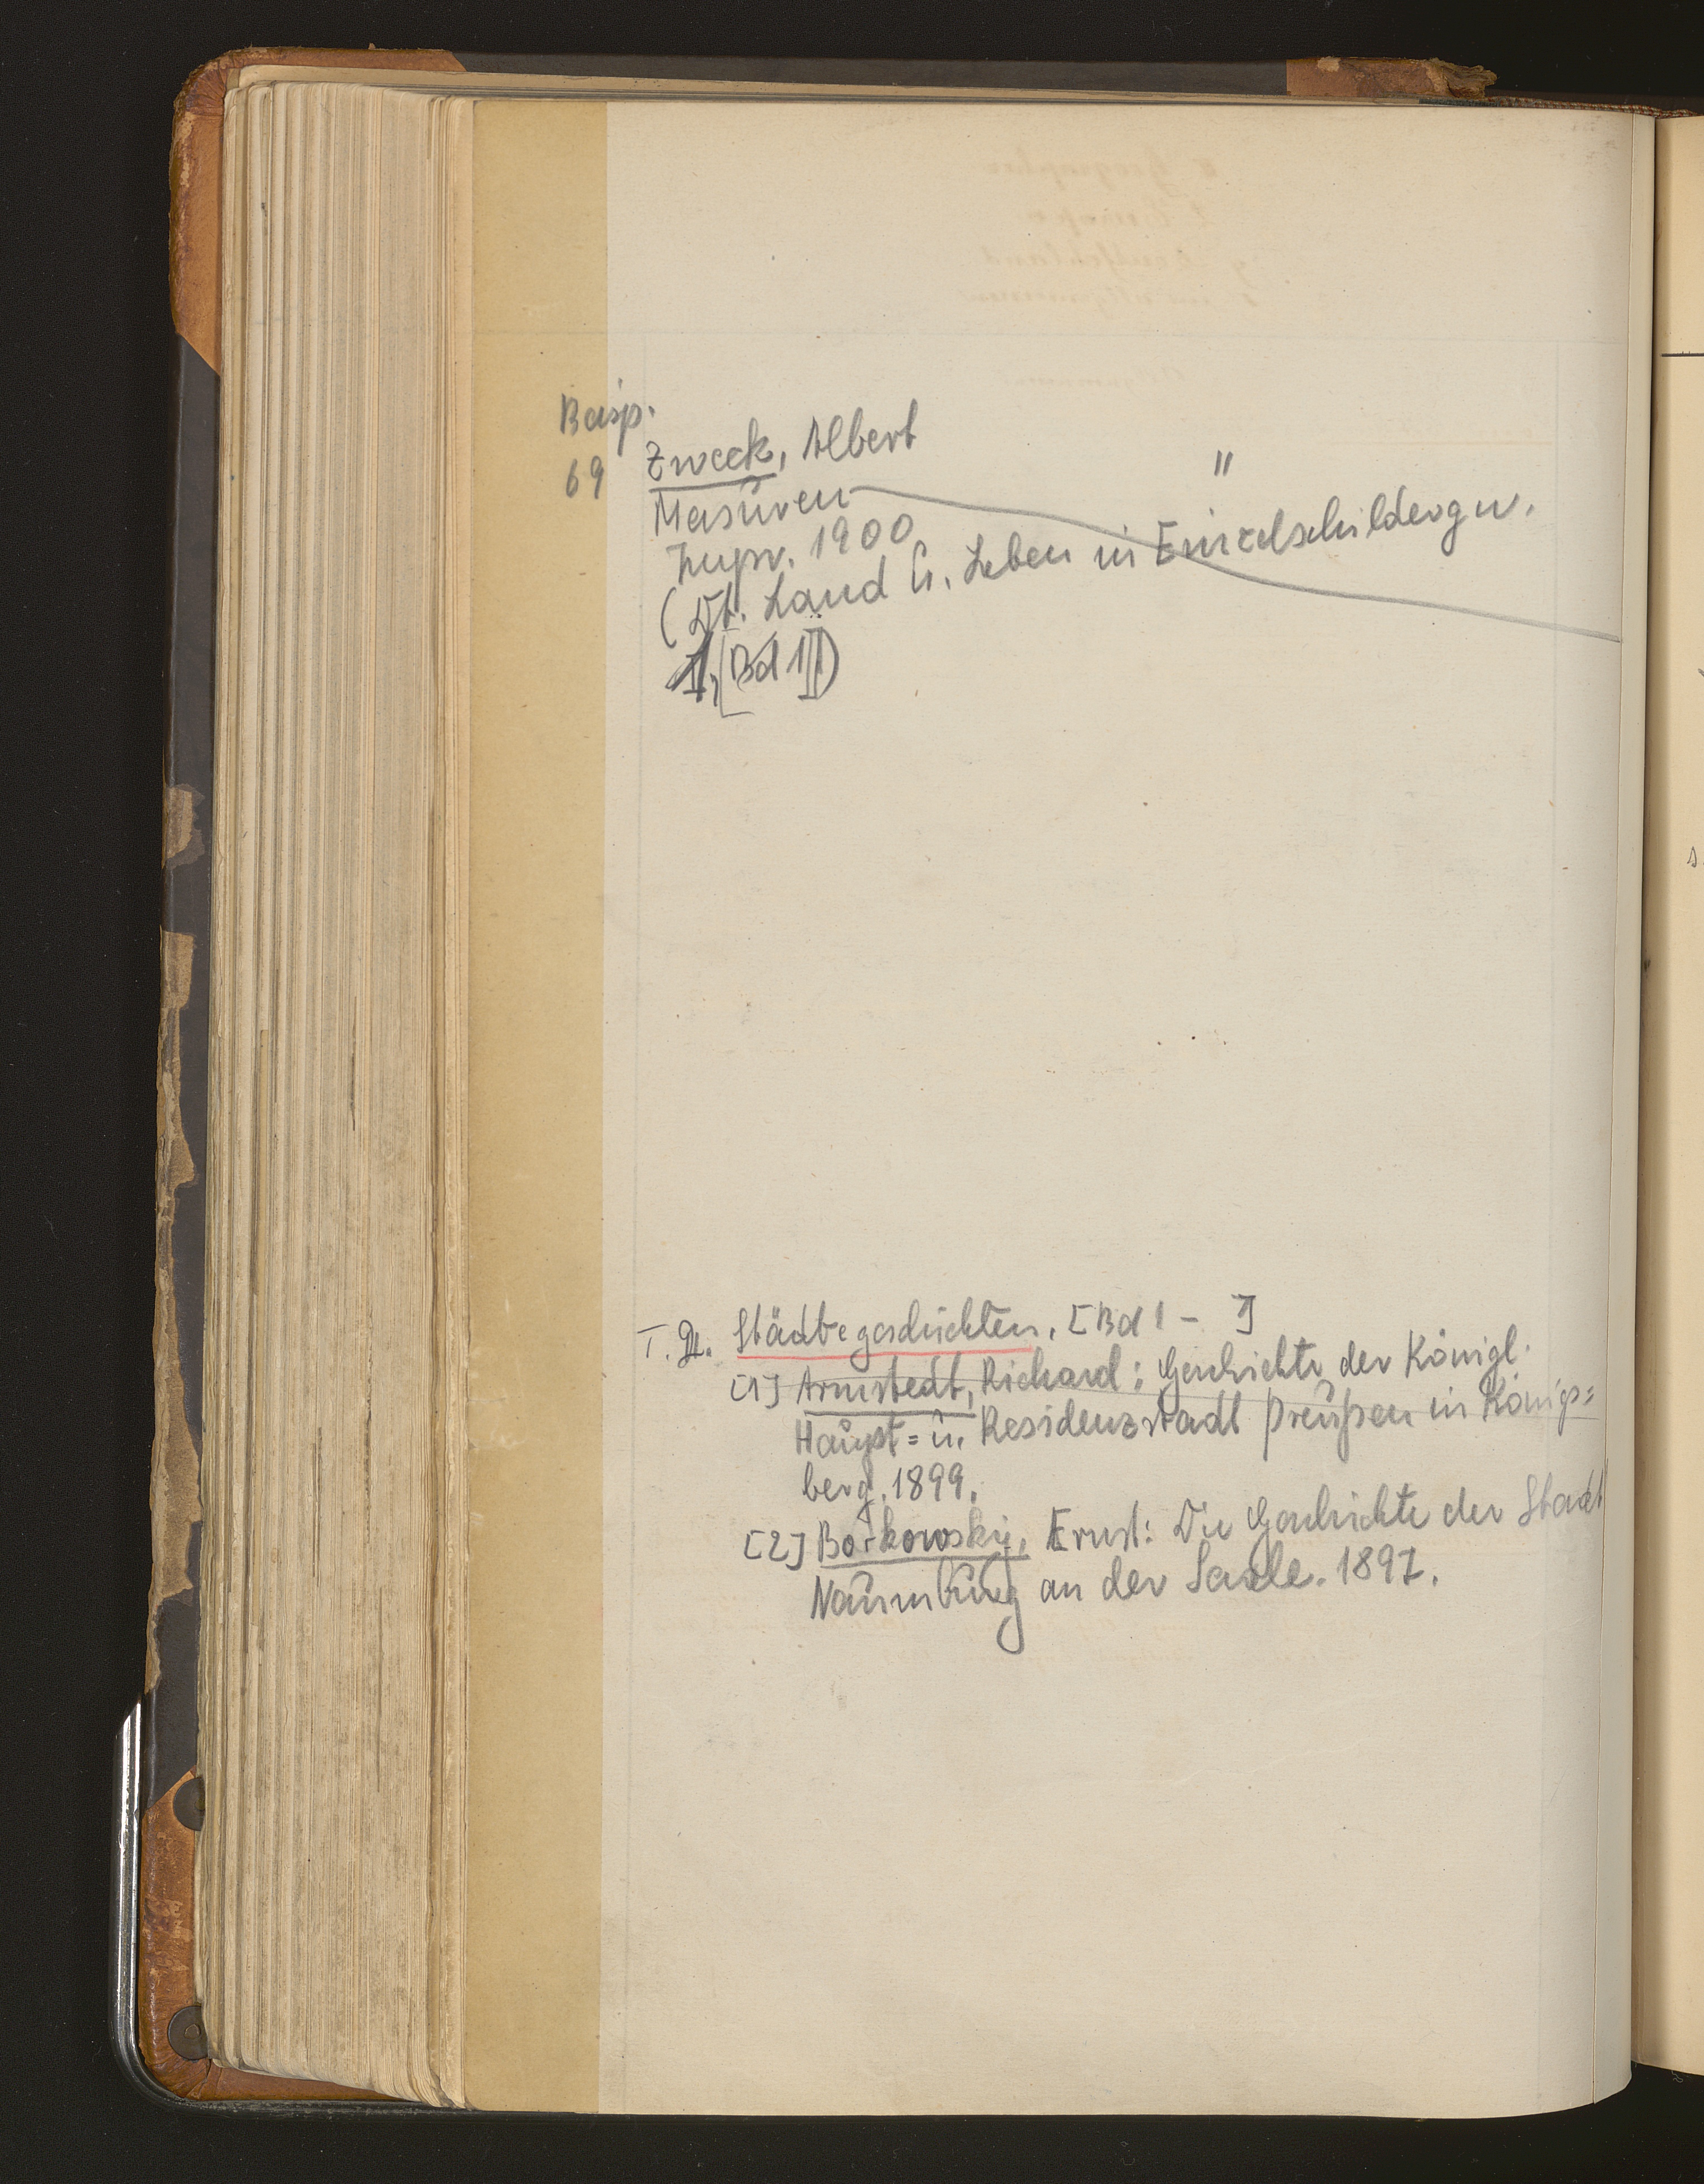 Beisp.
69 Zweck, Albert
Masuren "
1900
(Dt. Land u. Leben in Einzelschildergn.
1, [Bd 1])
I. 2. Städtegeschichten. [Bd 1 - ]
[1] Armstedt, Richard: Geschichte der Königl.
Haupt= u. Residenzstadt Preußen in Königs=
berg. 1899.
[2] Borkowsky, Ernst: Die Geschichte der Stadt
Naumburg an der Saale. 1897.